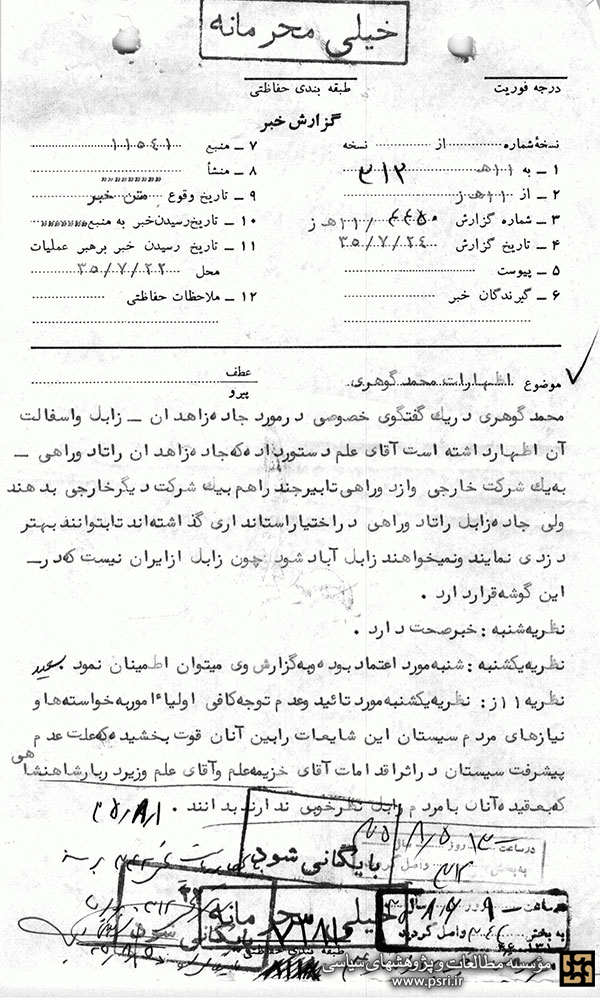 خیلی محرمانه
درجه فوریت
طبقه بندی حفاظتی
گزارش خبر
نسخهٔ شماره از نسخه
۱ ـ به ۱۱ هـ ۳۱۲
۲ ـ از ۱۱ هـ ز
۳ ـ شماره گزارش ۱۱/ هـ ز
۴ ـ تاریخ گزارش ۳۵/۷/۲۴
۵ ـ پیوست
۶ ـ گیرندگان خبر
۷ ـ منبع ۱۱۵۴۱
۸ ـ منشأ
۹ ـ تاریخ وقوع متن خبر
۱۰ ـ تاریخ رسیدن خبر به منبع
۱۱ ـ تاریخ رسیدن خبر برهبر عملیات
محل ۳۵/۷/۲۲
۱۲ ـ ملاحظات حفاظتی
موضوع اظهارات محمد گوهری
عطف
پیرو
محمد گوهری در یک گفتگوی خصوصی در مورد جاده زاهدان ـ زابل واسفالت
آن اظهار داشته است آقای علم دستور داده که جاده زاهدان راتاد وراهی ـ
به یک شرکت خارجی وازد وراهی تا بیرجند را هم بیک شرکت دیگر خارجی بدهند
ولی جاده زابل راتاد وراهی در اختیار استانداری گذاشته اند تا بتوانند بهتر
دزدی نمایند ونمیخواهند زابل آباد شود چون زابل از ایران نیست که در ـ
این گوشه قرار دارد .
نظریه شنبه : خبر صحت دارد .
نظریه یکشنبه : شنبه مورد اعتماد بوده وبه گزارش وی میتوان اطمینان نمود . سعید
نظریه ۱۱ ز : نظریه یکشنبه مورد تائید وعدم توجه کافی اولیاء امور به خواسته ها و
نیازهای مردم سیستان این شایعات را بین آنان قوت بخشیده که علت عدم
پیشرفت سیستان در اثر اقدامات آقای خزیمه علم وآقای علم وزیر دربار شاهنشاهی
که بعقیده آنان با مردم زابل نظر خوبی ندارند بدانند .
۳۵/۸/۱
بایگانی شود
در ساعت ۱۳ روز ۸/۵ سال
به بخش ۳۱۲ واصل گردید
خیلی محرمانه
بایگانی شود
در ساعت ۹ روز سال
به بخش واصل گردید
طبقه بندی حفاظتی
مؤسسه مطالعات و پژوهشهای سیاسی
www.psri.ir